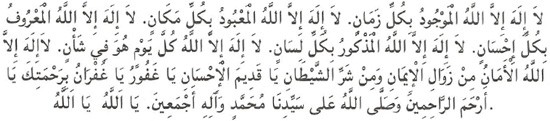 لاَ إِلَهَ إِلاَّ اللَّهُ الْمَوْجُودُ بِكُلِّ زَمَانٍ. لاَ إِلَهَ إِلاَّ اللَّهُ الْمَعْبُودُ بِكُلِّ مَكَانٍ. لاَ إِلَهَ إِلاَّ اللَّهُ الْمَعْرُوفُ
بِكُلِّ إِحْسَانٍ. لاَ إِلَهَ إِلاَّ اللَّهُ الْمَذْكُورُ بِكُلِّ لِسَانٍ. لاَ إِلَهَ إِلاَّ اللَّهُ كُلَّ يَوْمٍ هُوَ فِي شَأْنٍ. لاَإِلَهَ إِلاَّ
اللَّهُ الْأَمَانُ مِنْ زَوَالِ الْإِيمَانِ وَمِنْ شَرِّ الشَّيْطَانِ يَا قَدِيمَ الْإِحْسَانِ يَا غَفُورُ يَا غُفْرَانُ بِرَحْمَتِكَ يَا
أَرْحَمَ الرَّاحِمِينَ وَصَلَّى اللَّهُ عَلَى سَيِّدِنَا مُحَمَّدٍ وَآلِهِ أَجْمَعِينَ. يَا اللَّهُ يَا اللَّهُ.